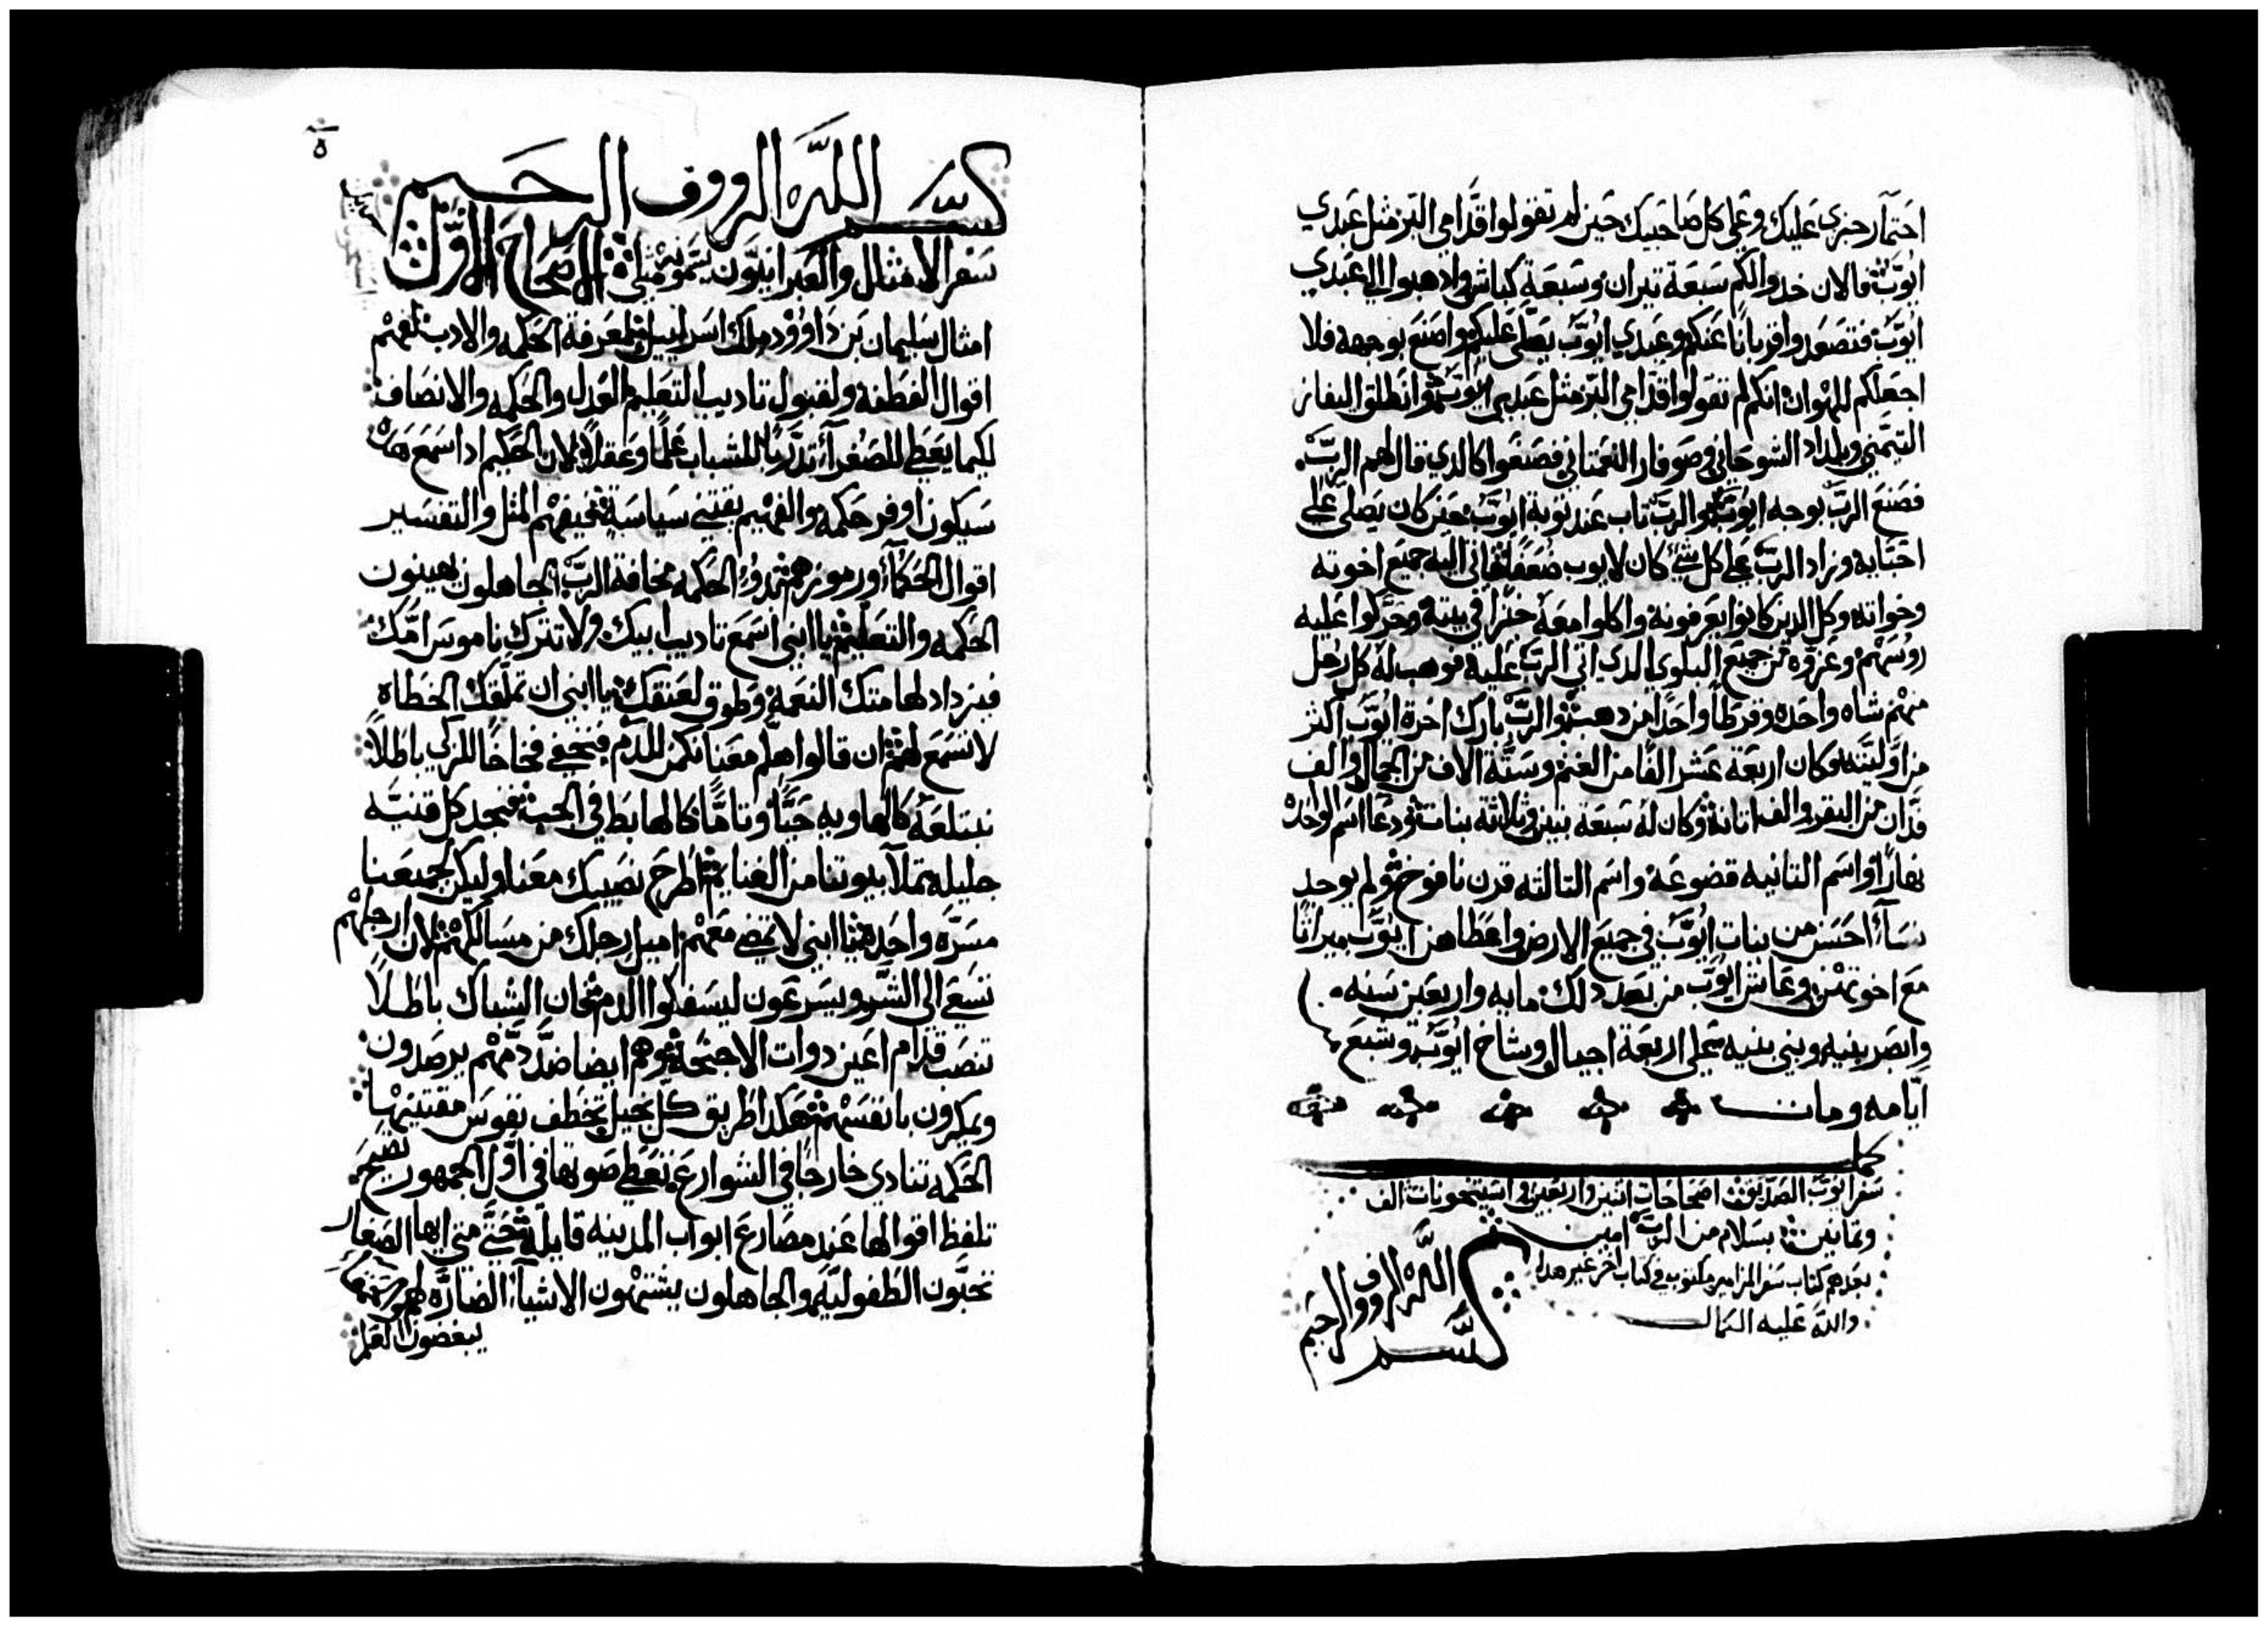 احتمار حنزي عليك وعلى كل صاحبيك حين لم تقولوا قدامي البر مثل عبدي
ايوب فالان خدوا لكم سبعة تيران وسبعة كباش وادهبوا الى عبدي
ايوب فتصعدوا قربانا عنكم وعبدي ايوب يصلى عليكم واصنع بوجهه فلا
اجعلكم للهوان انكم لم تقولوا قدامي البر مثل عبدي ايوب وانطلق اليفاز
التيمني وبلداد الشوحاني وصوفار النعمتاني فصنعوا كالدي قال لهم الرب
فصنع الرب بوجه ايوب والرب تاب عند توبة ايوب حين كان يصلى على
احبايه وزاد الرب على كل شي كان لايوب ضعفا فاتى اليه جميع اخوته
وخواته وكل الدين كانوا يعرفونه واكلوا معه خبزا في بيته وحركوا عليه
روسهم وعزوه من جميع البلوي الدي اتي الرب عليه فوهب له كل رجل
منهم شاه واحده وقرطا واحدا من دهب والرب بارك اخرة ايوب اكثر
من اوليته وكان اربعة عشر الفا من الغنم وستة الاف من الجمال والف
فدان من البقر والف اتانة وكان له سبعة بنين وثلاثة بنات ودعا اسم الواحده
نهارا واسم التانيه قضوعة واسم التالته قرن نافوخ ولم يوجد
نساء احسن من بنات ايوب في جميع الارض واعطاهن ايوب ميراثا
مع اخوتهن وعاش ايوب من بعد دلك مايه واربعين سنه
وابصر بنيه وبني بنيه على اربعة اجيال وشاخ ايوب وشبع
ايامه ومات
كمل
سفر ايوب الصديق اصحاحات اتنين واربعين واستيخونات الف
وتمانين بسلام من الرب امين
بعدهم كتاب سفر المزامير مكتوب في كتاب اخر غير هدا
والله عليه الكمال
بسم الله الرووف الرحيم
بسم الله الرووف الرحيم
سفر الامثال والعبرانيون يسمونه مثلي الاصحاح الاول
امثال سليمان بن داوود ملك اسراييل لمعرفة الحكمه والادب لفهم
اقوال الفطنة ولقبول تاديب التعليم العدل والحكمه والانصاف
لكيما يعطي للصغراء تدربا للشباب علما وعقلا لان الحكيم ادا سمع هده
سيكون اوفر حكمه والفهيم يقتني سياسة فيفهم المثل والتفسير
اقوال الحكماء ورموزهم بدو الحكمه مخافة الرب الجاهلون يهينون
الحكمه والتعليم يا ابني اسمع تاديب ابيك ولا تترك ناموس امك
فيزداد لهامتك النعمة وطوق لعنقك يا ابني ان تملقك الخطاه
لا تسمع لهم ان قالوا هلم معنا نكمن للدم فنخفي فخاخا للزكي باطلا
نبتلعه كالهاويه حيا وتاما كالهابط في الجب فنجد كل قنيه
جليله نملا بيوتنا من الغنايم اطرح نصيبك معنا وليكن لجميعنا
مسره واحده يا ابني لا تمضي معهم اميل رجلك من مسالكهم لان ارجلهم
تسعي الى الشر ويسرعون ليسفكوا الدم فان الشباك باطلا
تنصب قدام اعين دوات الاجنحة وهم ايضا ضد دمهم يرصدون
ويمكرون بانفسهم هكدا طريق كل بخيل تخطف نفوس مقتنيها
الحكمه تنادي خارجا في الشوارع تعطي صوتها في اول الجمهور تصيح
تلفظ اقوالها عند مصارع ابواب المدينه قايلة حتى متى ايها الصغار
تحبون الطفوليه والجاهلون يشتهون الاشياء الضاره لهم
يبغضون العلم